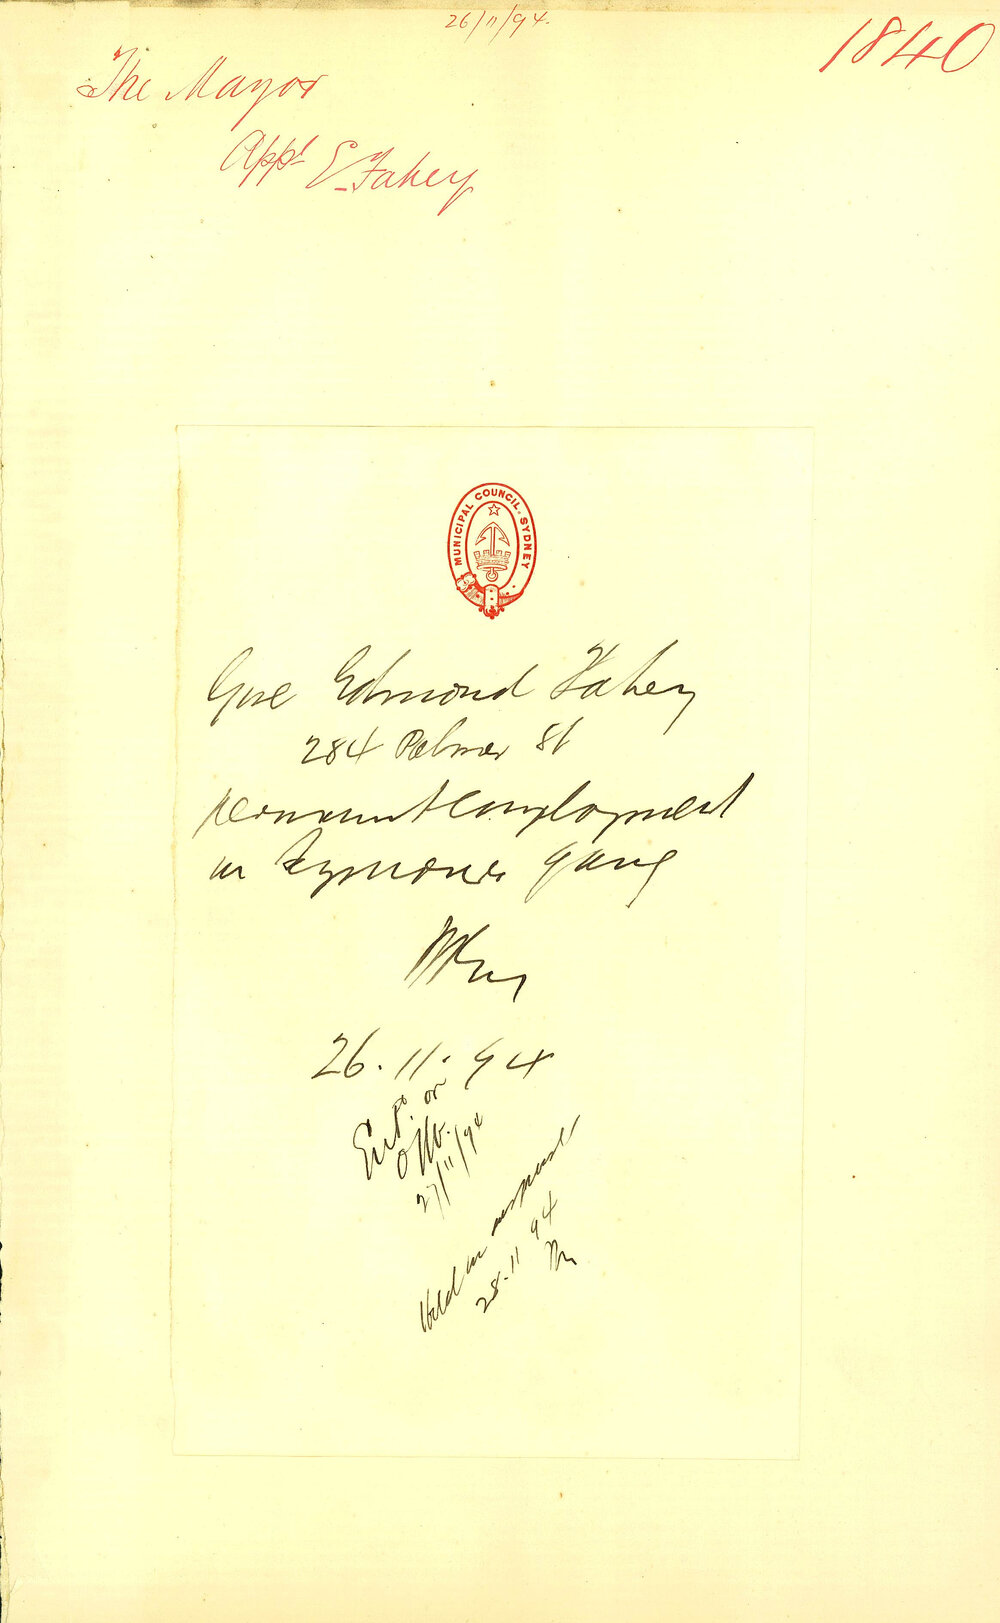 26/11/94.
1840
The Mayor
Appt E Fahey
MUNICIPAL COUNCIL. SYDNEY
Give Edmond Fahey
284 Palmer St
permanent employment
in gang
26.11.94
on
27/11/94
Held in
28.11 94